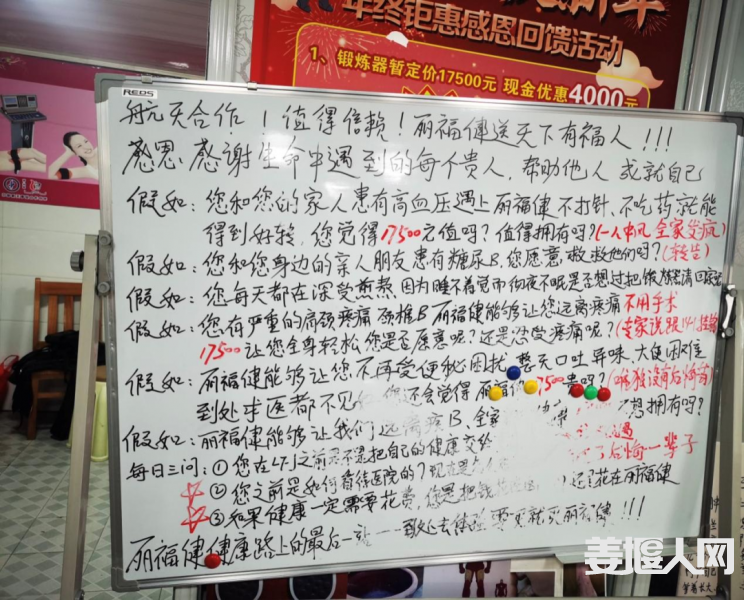 年终钜惠感恩回馈活动
1、锻炼器暂定价17500元 现金优惠4000元
REDS
航天合作!值得信赖!丽福健送天下有福人!!!
感恩 感谢生命中遇到的每个贵人,帮助他人 成就自己
假如:您和您的家人患有高血压遇上丽福健不打针、不吃药就能
得到好转,您觉得17500元值吗?值得拥有吗?(一人中风 全家发疯)
假如:您和您身边的亲人朋友患有糖尿B,您愿意救救他们吗?(转告)
假如:您每天都在深受煎熬 因为睡不着觉而彻夜不眠是否想过把
假如:您有严重的肩颈疼痛 颈椎B 丽福健能够让您远离疼痛 不用手术
17500让您全身轻松您是否愿意呢?还是忍受疼痛呢?(专家说
假如:丽福健能够让您不再受便秘困扰 整天口吐异味、大便困难
到处求医都不见 您还会觉得丽福健17500贵吗?
假如:丽福健能够让我们远离疾B、全家 健康 想拥有吗?
后悔一辈子
每日三问:①您在 之前是不是把自己的健康交给
②您之前是如何看待医院的?现在 还是花在丽福健
③如果健康一定需要花费,你是把钱
丽福健健康路上的最后一站 要买就买丽福健!!!
姜堰人网